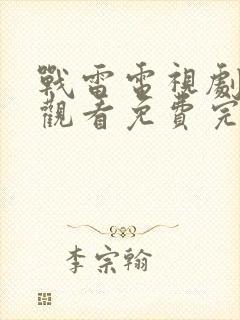 戰雷電視劇
觀看免費完
李宗翰